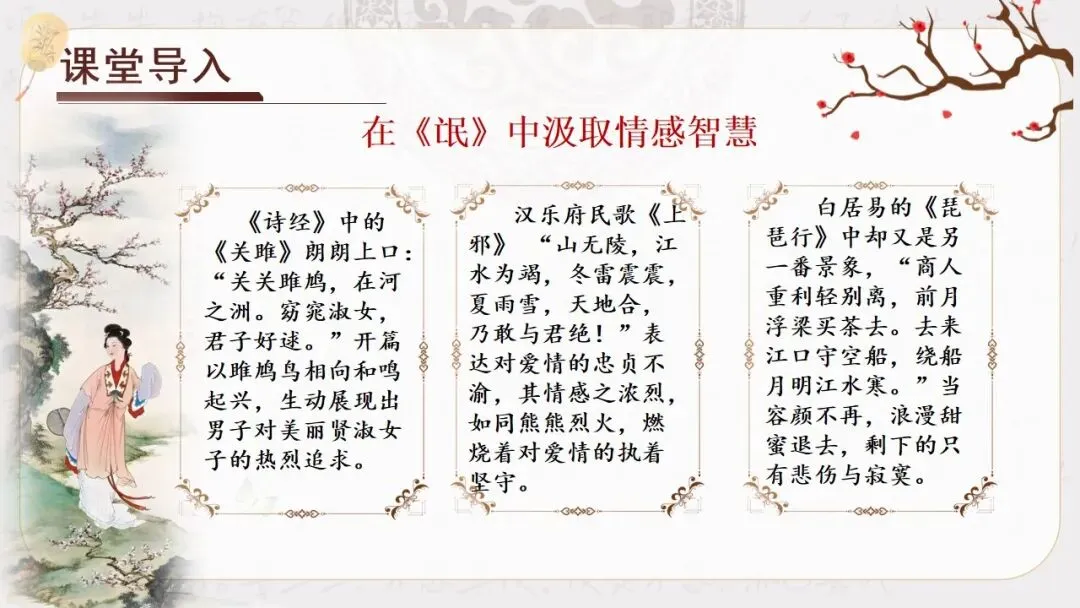 课堂导入
在《氓》中汲取情感智慧
《诗经》中的
《关雎》朗朗上口：
“关关雎鸠，在河
之洲。窈窕淑女，
君子好逑。”开篇
以雎鸠鸟相向和鸣
起兴，生动展现出
男子对美丽贤淑女
子的热烈追求。
汉乐府民歌《上
邪》 “山无陵，江
水为竭，冬雷震震，
夏雨雪，天地合，
乃敢与君绝！”表
达对爱情的忠贞不
渝，其情感之浓烈，
如同熊熊烈火，燃
烧着对爱情的执着
坚守。
白居易的《琵
琶行》中却又是另
一番景象，“商人
重利轻别离，前月
浮梁买茶去。去来
江口守空船，绕船
月明江水寒。”当
容颜不再，浪漫甜
蜜退去，剩下的只
有悲伤与寂寞。